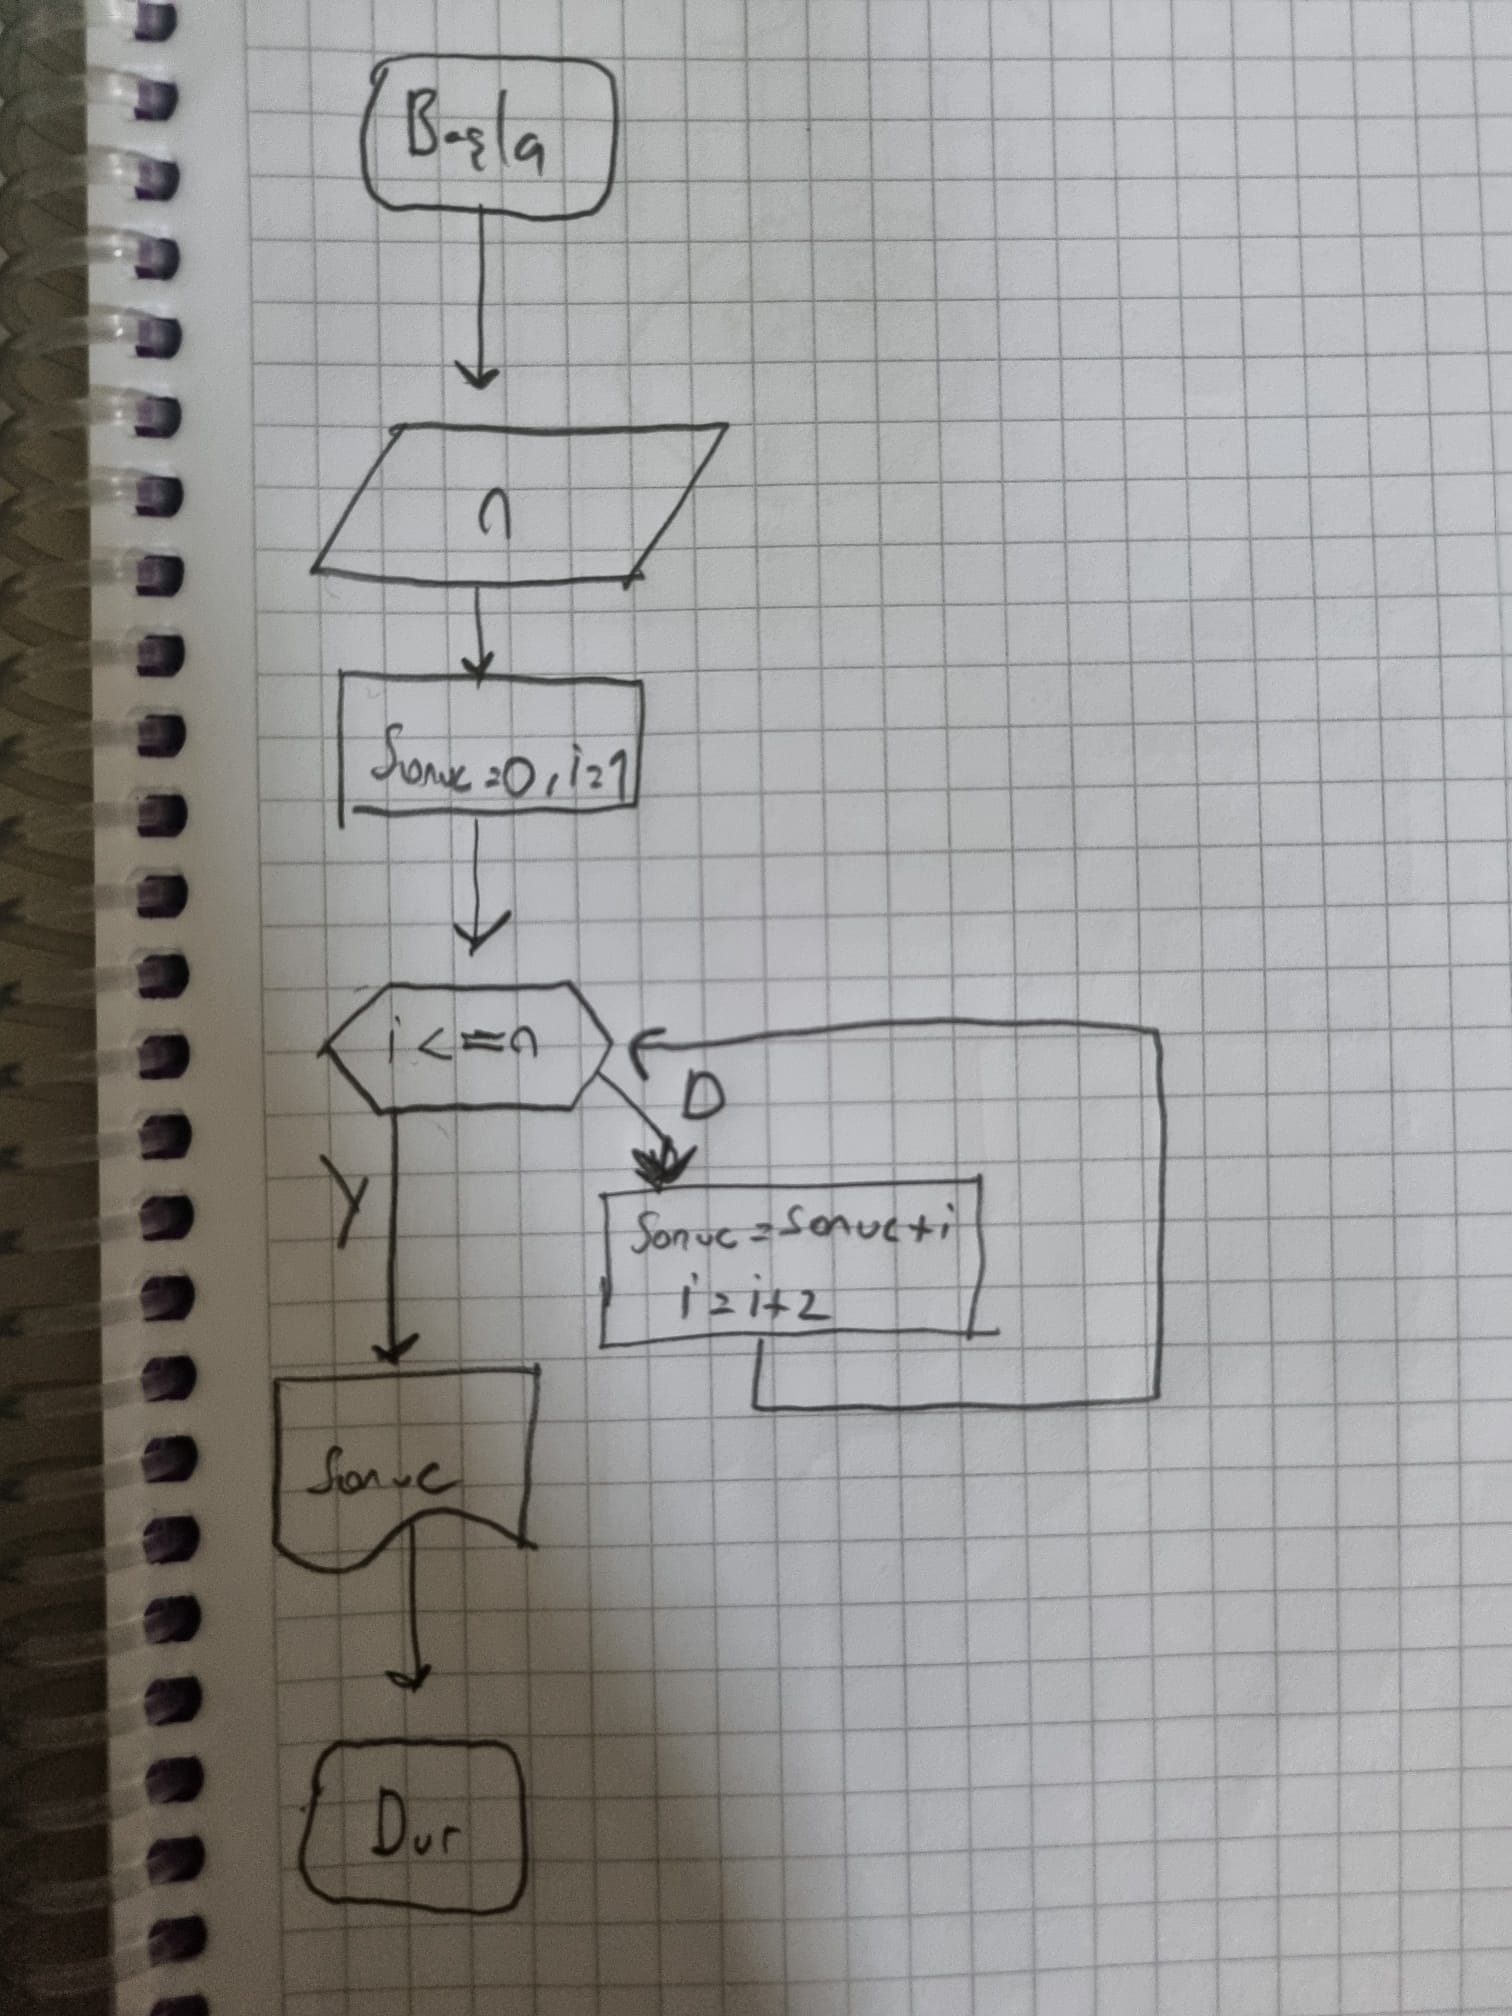 Başla
n
Sonuc=0, i=1
i <= n
D
Y
Sonuc = Sonuc + i
i = i + 2
Sonuc
Dur